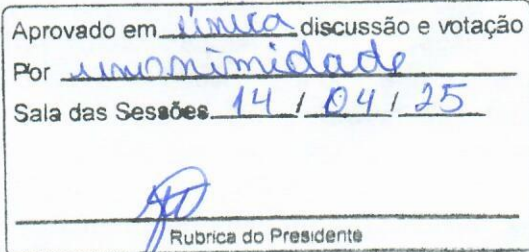 Aprovado em única discussão e votação
Por unanimidade
Sala das Sessões 14 / 04 / 25
Rubrica do Presidente